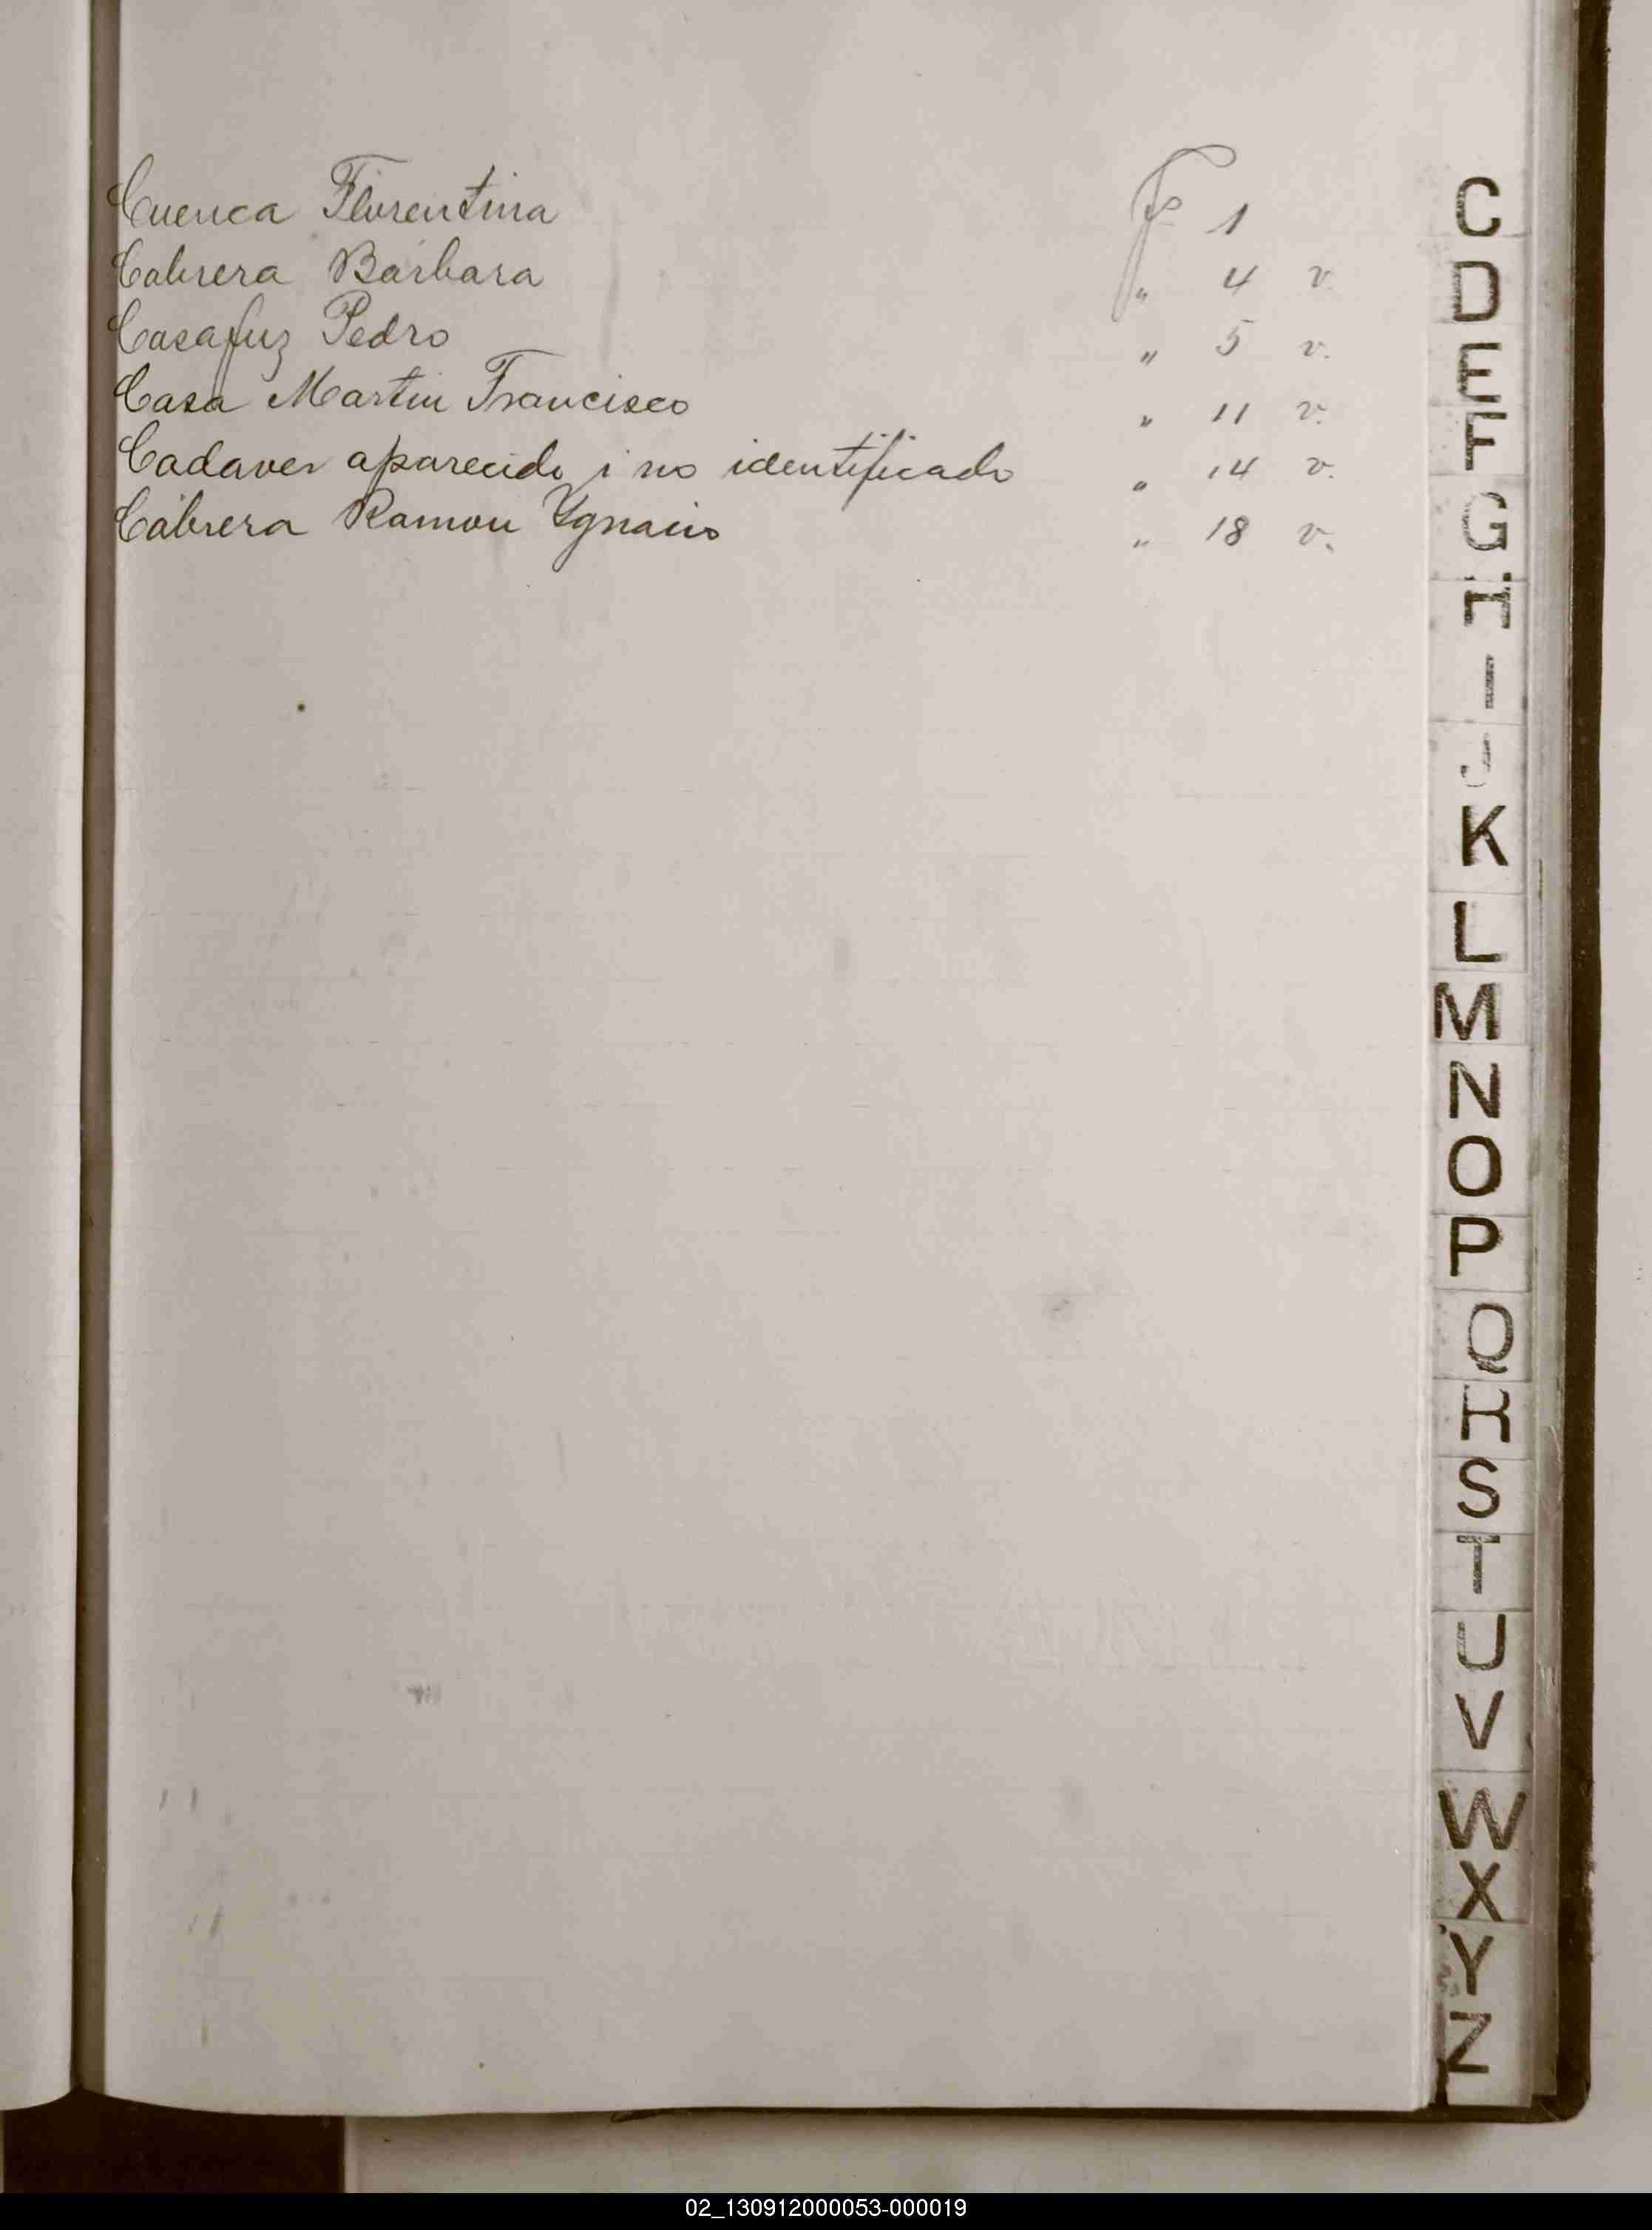 Cuenca Florentina Fº 1
Cabrera Bárbara " 4 v.
Casafuz Pedro " 5 v.
Casa Martin Francisco " 11 v.
Cadaver aparecido i no identificado " 14 v.
Cabrera Ramon Ygnacio " 18 v.
C
D
E
F
G
H
I
J
K
L
M
N
O
P
Q
R
S
T
U
V
W
X
Y
Z
02_130912000053-000019